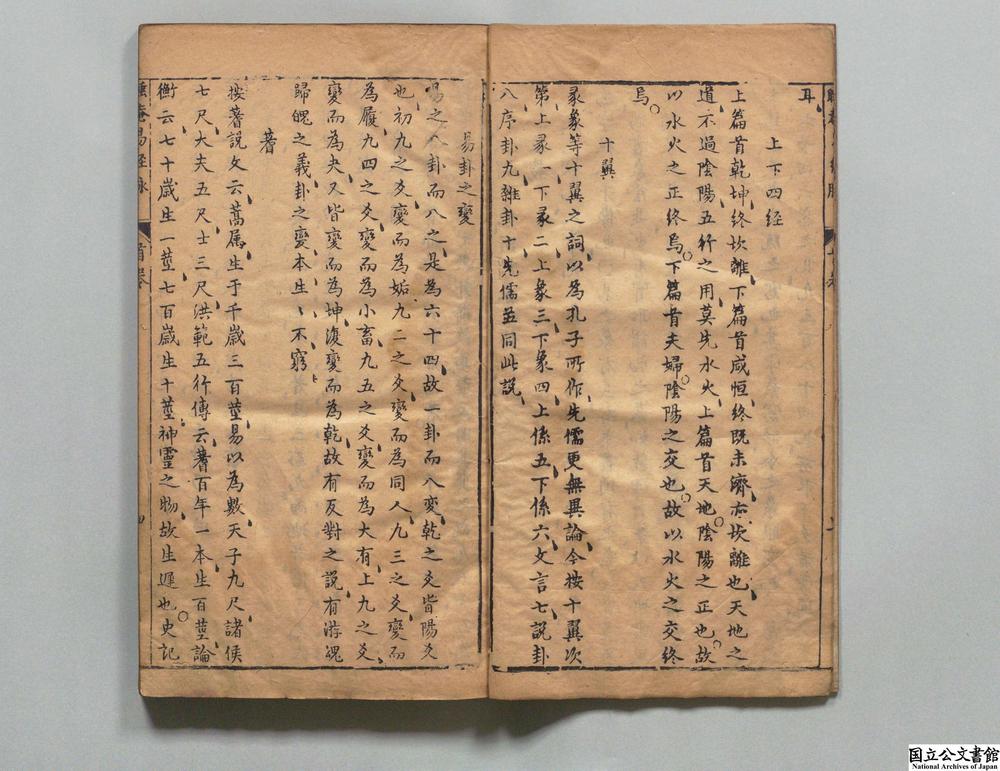 耳
上下四経
上篇首乾坤終坎離下篇首咸恒終既未濟右坎離也天地之
道不過陰陽五行之用莫先水火上篇首天地陰陽之正也故
以水火之正終焉下篇首夫婦陰陽之交也故以水火之交終
焉
十翼
彖象等十翼之詞以為孔子所作先儒更無異論今按十翼次
第上彖一下彖二上象三下象四上係五下係六文言七說卦
八序卦九雜卦十先儒並同此說
易卦之變
易之八卦而八之是為六十四故一卦而八变乾之爻皆陽爻
也初九之爻變而為姤九二之爻變而為同人九三之爻變而
為履九四之爻變而為小畜九五之爻變而為大有上九之爻
變而為夬又皆變而為坤復變而為乾故有反對之說有游魂
歸魄之義卦之變本生〻不窮
蓍
按蓍說文云蒿属生于千歲三百莖易以為數天子九尺諸侯
七尺大夫五尺士三尺洪範五行傳云蓍百年一本生百莖論
衡云七十歲生一莖七百歲生十莖神靈之物故生遲也史記
易経
首卷
四
国立公文書館
National Archives of Japan